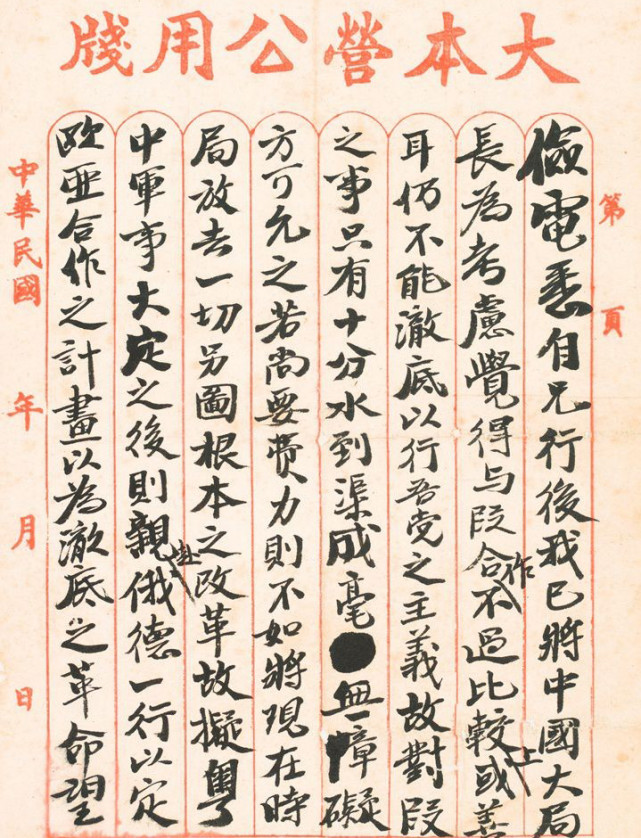 大本營公用牋
第 頁
儉電悉自兄行後我已將中國大局
長為考慮覺得与段合作不過比較上或善
耳仍不能澈底以行吾党之主義故對段
之事只有十分水到渠成毫無障礙
方可允之若尚要费力則不如將現在時
局放去一切另圖根本之改革故擬粵
中軍事大定之後則親赴俄德一行以定
欧亜合作之計畫以為澈底之革命望
中華民國 年 月 日